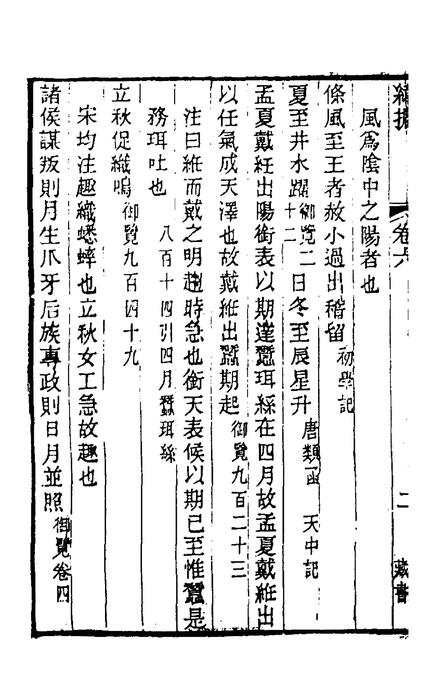 緯攟 卷六 二 藏書
風爲陰中之陽者也
條風至王者赦小過出稽留 初學記
夏至井水躍 御覽二十二 日冬至辰星升 唐類函 天中記
孟夏戴紝出陽銜表以期達蠶珥絲在四月故孟夏戴紝出
以任氣成天澤也故戴紝出蠶期起 御覽九百二十三
注曰紝而戴之明趣時急也銜天表候以期已至惟蠶是
務珥吐也 八百十四引四月蠶珥絲
立秋促織鳴 御覽九百四十九
宋均注趣織蟋蟀也立秋女工急故趣也
諸侯謀叛則月生爪牙后族專政則日月並照 御覽卷四